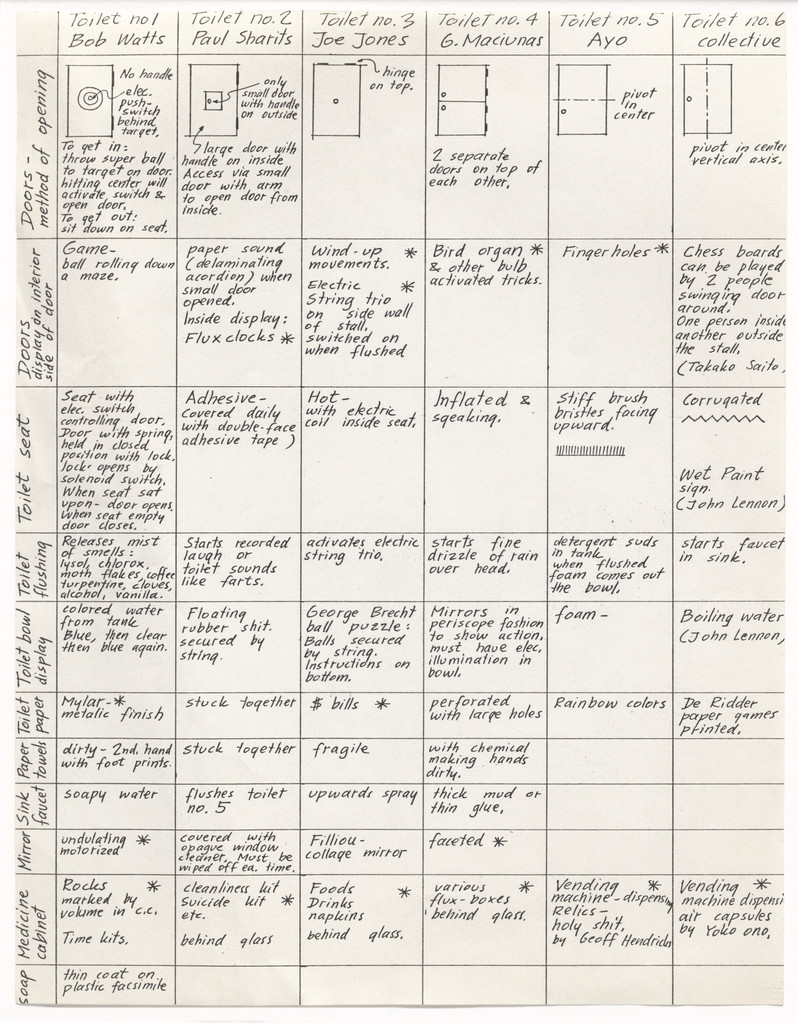 Toilet no 1
Bob Watts
Toilet no. 2
Paul Sharits
Toilet no. 3
Joe Jones
Toilet no. 4
G. Maciunas
Toilet no. 5
Ayo
Toilet no. 6
collective
Doors -
method of opening
No handle
elec.
push-
switch
behind
target.
To get in:
throw super ball
to target on door.
hitting center will
activate switch &
open door.
To get out:
sit down on seat.
only
small door
with handle
on outside
large door with
handle on inside
Access via small
door with arm
to open door from
inside.
hinge
on top.
2 separate
doors on top of
each other.
pivot
in
center
pivot in center
vertical axis.
Doors
display on interior
side of door
Game-
ball rolling down
a maze.
paper sound
(delaminating
acordion) when
small door
opened.
Inside display:
Flux clocks *
Wind-up *
movements.
Electric *
String trio
on side wall
of stall,
switched on
when flushed
Bird organ *
& other bulb
activated tricks.
Finger holes *
Chess boards
can be played
by 2 people
swinging door
around.
One person inside
another outside
the stall.
(Takako Saito,
Toilet seat
Seat with
elec. switch
controlling door.
Door with spring,
held in closed
position with lock.
lock opens by
solenoid switch.
When seat sat
upon - door opens
when seat empty
door closes.
Adhesive-
covered daily
with double-face
adhesive tape)
Hot-
with electric
coil inside seat.
Inflated &
sqeaking.
Stiff brush
bristles facing
upward.
Corrugated
Wet Paint
sign.
(John Lennon)
Toilet
flushing
Releases mist
of smells:
lysol, chlorox,
moth flakes, coffee
turpentine, cloves,
alcohol, vanilla.
Starts recorded
laugh or
toilet sounds
like farts.
activates electric
string trio.
starts fine
drizzle of rain
over head.
detergent suds
in tank
when flushed
foam comes out
the bowl,
starts faucet
in sink.
Toilet bowl
display
colored water
from tank
Blue, then clear
then blue again.
Floating
rubber shit.
secured by
string.
George Brecht
ball puzzle:
Balls secured
by string.
Instructions on
bottom.
Mirrors in
periscope fashion
to show action,
must have elec.
illumination in
bowl.
foam -
Boiling water
(John Lennon,
Toilet
paper
Mylar- *
metalic finish
stuck together
$ bills *
perforated
with large holes
Rainbow colors
De Ridder
paper games
printed.
Paper
towels
dirty- 2nd. hand
with foot prints.
stuck together
fragile
with chemical
making hands
dirty.
Sink
faucet
soapy water
flushes toilet
no. 5
upwards spray
thick mud or
thin glue,
Mirror
undulating *
motorized
covered with
opaque window
cleaner. Must be
wiped off ea. time.
Filliou-
collage mirror
faceted *
Medicine
cabinet
Rocks *
marked by
volume in c.c.
Time kits.
cleanliness kit
Suicide kit *
etc.
behind glass
Foods *
Drinks
napkins
behind glass.
various *
flux-boxes
behind glass.
Vending *
machine - dispensing
Relics-
holy shit.
by Geoff Hendricks
Vending *
machine dispensi
air capsules
by Yoko ono,
soap
thin coat on
plastic facsimile